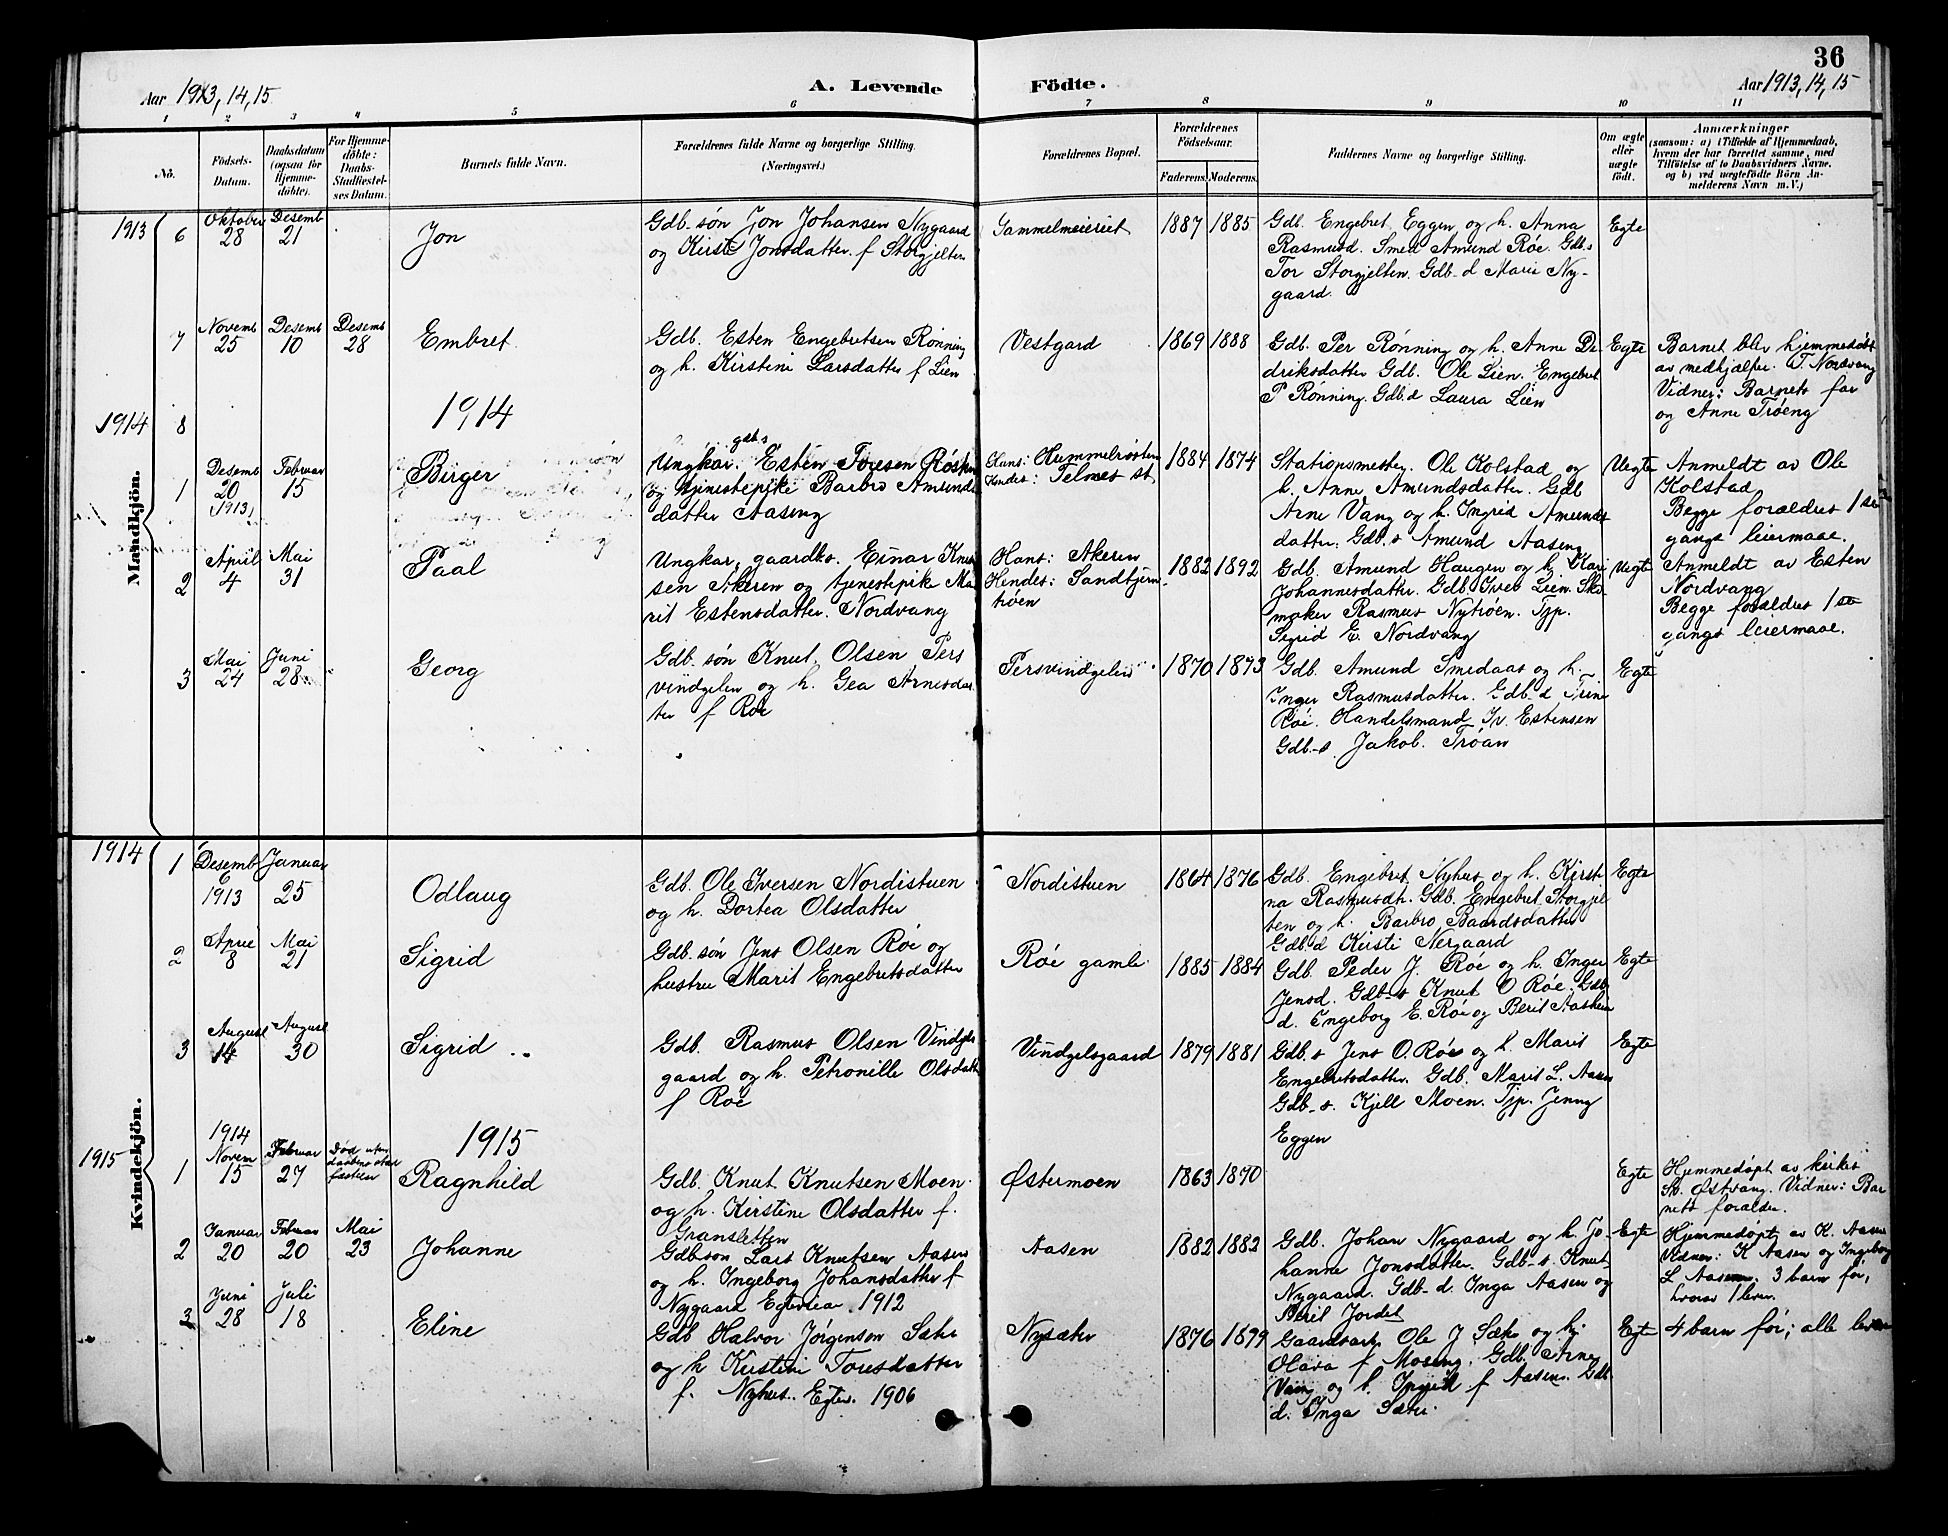 36
Aar 1913, 14, 15
A. Levende Födte.
Aar 1913, 14, 15
1 2 3 4 5 6 7 8 9 10 11
No.
Födsels-
Datum.
Daabsdatum
(ogsaa för
Hjemme-
døbte).
For Hjemme-
døbte:
Daabs-
Stadfæstel-
ses Datum.
Barnets fulde Navn.
Forældrenes fulde Navne og borgerlige Stilling.
(Næringsvei.)
Forældrenes Bopæl.
Forældrenes
Födselsaar.
Faderens. Moderens.
Faddernes Navne og borgerlige Stilling.
Om ægte
eller
uægte
födt.
Anmærkninger
(saasom: a) i Tilfælde af Hjemmedaab,
hvem der har forrettet samme, med
Tilföielse af to Daabsvidners Navne,
og b) ved uægtefödte Börn An-
melderens Navn m. V.)
Mandkjön.
1913
6
Oktober
28
Desemb
21
Jon
Gdb. søn Jon Johansen Nygaard
og Kirsti Jonsdatter f Storgjelten
Sammelmeieriet
1887 1885
Gdb. Engebret Eggen og h. Anna
Rasmusd. Smed Amund Røe. Gdb.s
Tor Storgjelten. Gdb-d Marie Ny-
gaard.
Egte
7
Novemb
25
Desemb
10
Desemb
28
Embret
Gdb. Esten Engebretsen Rønning
og h. Kirstine Larsdatter f Lien
Vestgard
1869 1888
Gdb. Per Rønning og h. Anne De-
driksdatter Gdb. Ole Lien. Engebret
P Rønning. Gdb.d Laura Lien
Egte
Barnet blev hjemmedøbt
av medhjælper T. Nordvang
Vidner: Barnets far
og Anne Trøeng
1914
8
1914
1
Desemb
20
(1913)
Februar
15
Birger
gdb s
Ungkar. Esten Toresen
og tjenestepike Barbro Amunds
datter Aaseng
Hans: Hummelvosten
Hendes: Telmes st
1884 1874
Stationsmester Ole Kolstad og
h. Anne Amundsdatter. Gdb
Arne Vang og h. Ingrid Amunds
datter. Gdb.s Amund Aaseng
Uegte
Anmeldt av Ole
Kolstad
Begge forældres 1ste
gangs leiermaal.
2
April
4
Mai
31
Paal
Ungkar, gaardb.s. Einar Knut
sen Akeren og tjenestepike Ma
rit Estensdatter. Nordvang
Hans: Akeren
Hendes: Sandtjern-
trøen
1882 1892
Gdb. Amund Haugen og h. Kari
Johannesdatter. Gdb. Iver Lien. Sko
maker Rasmus Nytrøen. Tjp.
Sigrid E. Nordvang
Uegte
Anmeldt av Esten
Nordvang
Begge forældres 1ste
gangs leiermaal.
3
Mai
24
Juni
28
Georg
Gdb. søn Knut Olsen Pers
vindgelen og h. Gea Arnesdat
ter f Røe
Persvindgelen
1870 1873
Gdb. Amund Smedaas og h.
Inger Rasmusdatter. Gdb-d Trine
Røe. Handelsmand Iv. Estensen
Gdb-s. Jakob. Trøan
Egte
Kvindekjön.
1914
1
Desemb
6
1913
Januar
25
Odlaug
Gdb. Ole Iversen Nordistuen
og h. Dortea Olsdatter
Nordistuen
1864 1876
Gdb. Engebret Nyhus og h. Kirsti
na Rasmusdtr. Gdb. Engebret Storgjel
ten og h. Barbro Baardsdatter
Gdb.d Kirsti Nergaard
Egte
2
April
8
Mai
21
Sigrid
Gdb. søn Jens Olsen Røe og
hustru Marit Engebretsdatter
Røe gamle
1885 1884
Gdb. Peder J. Røe og h. Inger
Jensd. Gdb-s Knut O Røe. Gdb
d. Ingeborg E. Røe og Berit
Egte
3
August
14
August
30
Sigrid
Gdb. Rasmus Olsen Vindgels
gaard og h. Petronille Olsdatt
f Røe
Vindgelsgaard
1879 1881
Gdb.s Jens O. Røe og h. Marit
Engebretsdatter. Gdb. Marit L. Aasen
Gdb-s. Kjell Moen. Tjp. Jenny
Eggen
Egte
1915
1915
1
1914
Novem
15
Februar
27
Død uten
daabens stad
fæstelse
Ragnhild
Gdb. Knut Knutsen Moen
og h. Kirstine Olsdatter f.
Gransletten
Østermoen
1863 1870
Egte
Hjemmedøpt av kirkes
Østvang. Vidner: Bar
nets forældre.
2
Januar
20
Februar
20
Mai
23
Johanne
Gdb søn Lars Knutsen Aasen
og h. Ingeborg Johansdatter f
Nygaard Egteviet 1912
Aasen
1882 1882
Gdb. Johan Nygaard og h. Jo-
hanne Jonsdatter. Gdb-s. Knut
Nygaard. Gdb-d. Inga Aasen og
Berit Jordet
Egte
Hjemmedøpt av K. Aasen
Vidner: K Aasen og Ingeborg
L Aasen. 3 barn før,
hvorav 1 lever.
3
Juni
28
Juli
18
Eline
Gdb Halvor Jørgensen Sæter
og h Kirstine Toresdatter
f. Nyhus. Egtev. 1906
Nysæter
1876 1879
Gaardsarb. Ole J Sæter og h.
Olava f. Moseng. Gdb. Arne
Vang og h. Ingrid f Aasen. Gdb.
d. Inga Sæter.
Egte
4 barn før; alle lever